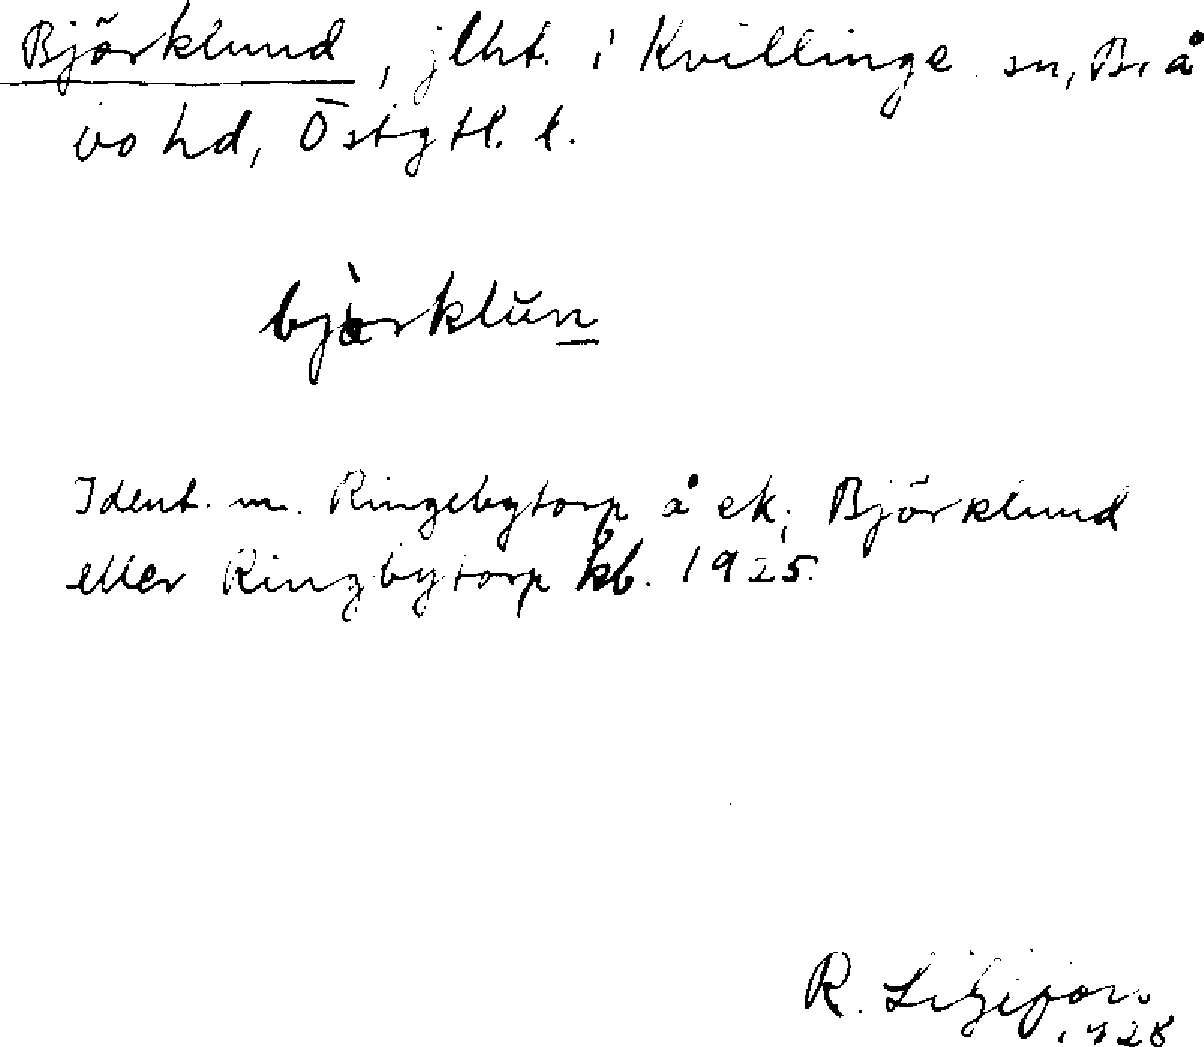 Björklund, jlht. i Kvillinge sn, Brå
bo hd, Östgtl. l.
Ident. m. Ringebytorp å ek; Björklund
eller Ringbytorp kb. 1925.
R.
1928